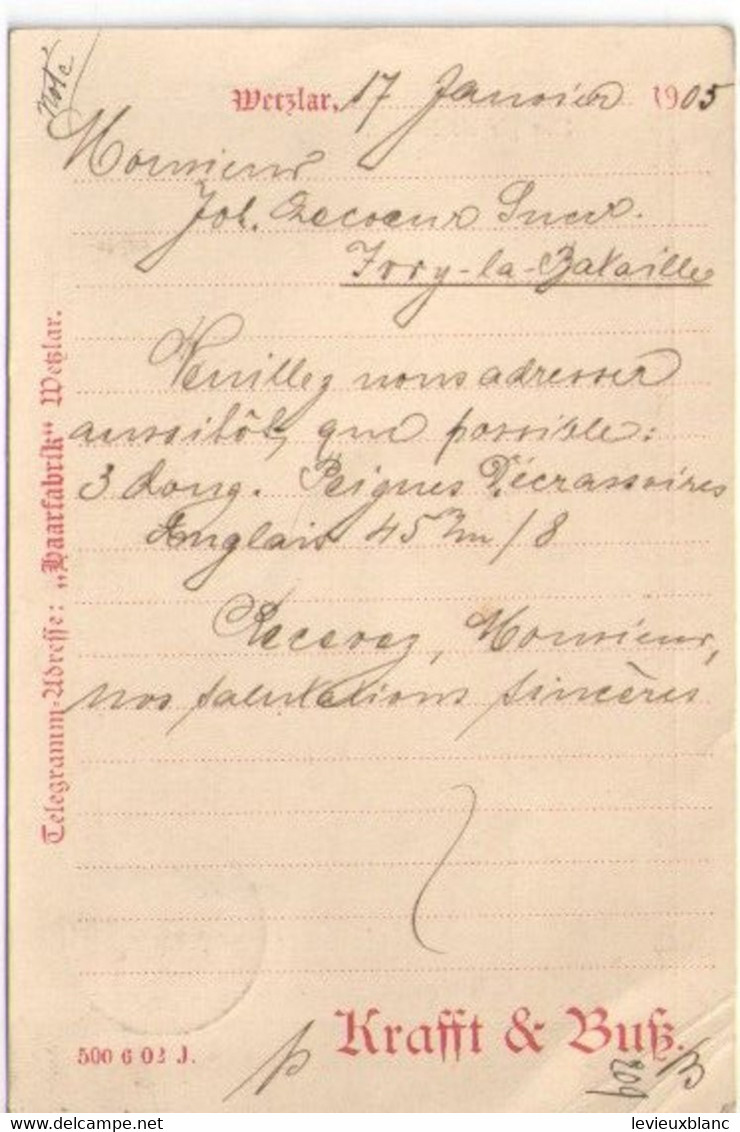 noté
Wetzlar, 17 Janvier 1905
Monsieur
Lecoeur Sucr.
Ivry-la-Bataille
Veuillez nous adresser
aussitôt, que possible:
3 douz. Peignes Décrassoires
Anglais 45 m/m / 8
Recevez, Monsieur,
nos salutations sincères
Telegramm-Adresse: „Haarfabrik" Wetzlar.
Krafft & Buß.
500 6 02 J.
809
levieuxblanc